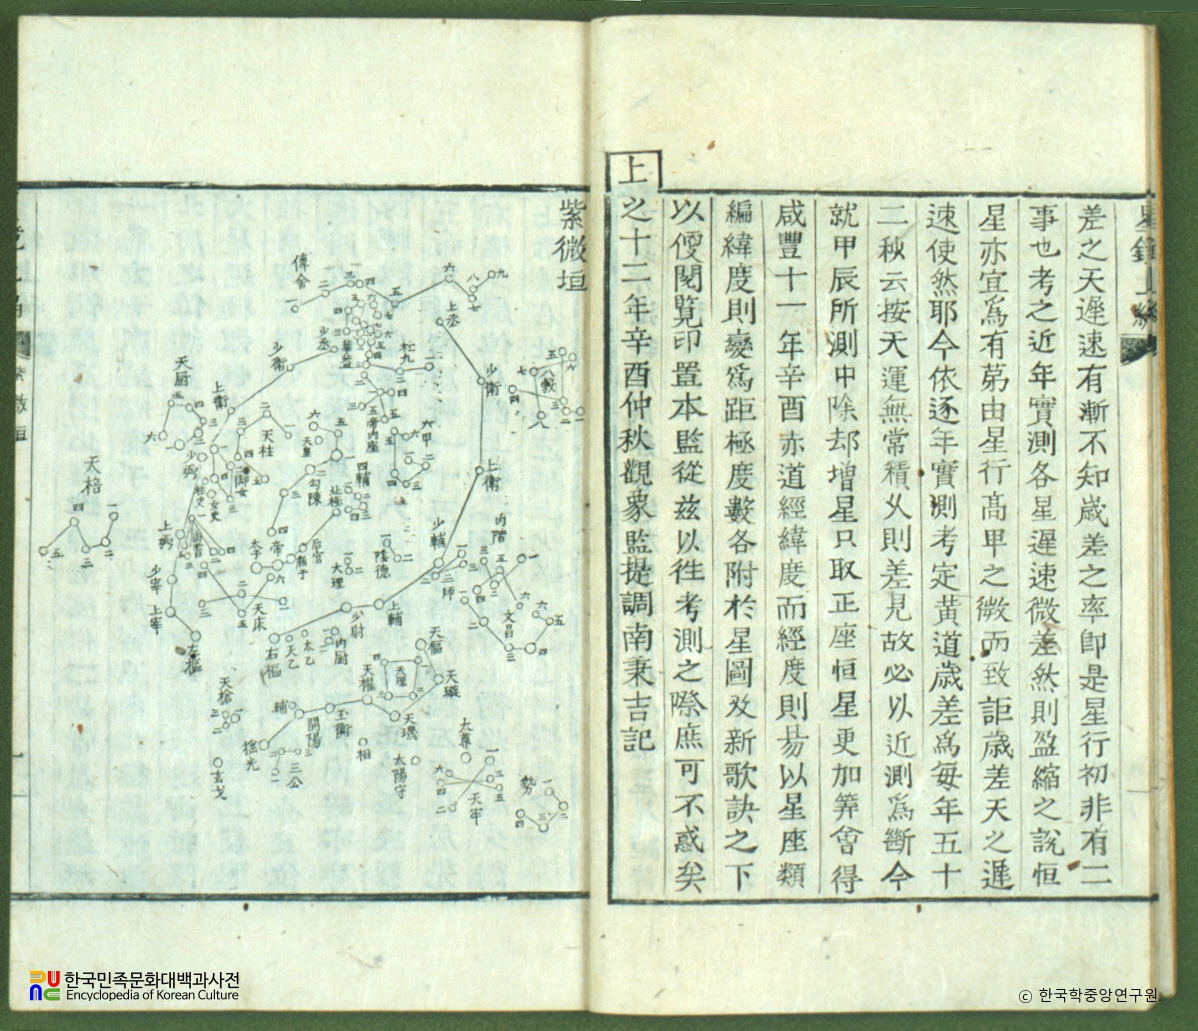 星鏡上編
差之天遲速有漸不知歲差之率卽是星行初非有二
事也考之近年實測各星遲速微差然則盈縮之說恒
星亦宜爲有苐由星行髙卑之微而致詎歲差天之遲
速使然耶今依逐年實測考定黃道歲差爲每年五十
二秋云按天運無常積久則差見故必以近測爲斷今
就甲辰所測中除却增星只取正座恒星更加筭會得
咸豐十一年辛酉赤道經緯度而經度則昜以星座類
編緯度則變爲距極度數各附於星圖及新歌訣之下
以便閱覽印置本監從兹以徃考測之際庶可不惑矣
上之十二年辛酉仲秋觀象監提調南秉吉記
紫微垣
傳舍
上丞
少丞
華盖
杠九
八糓
少衛
少衛
天厨
上衛
五帝內座
六甲
天柱
天皇
勾陳
四輔
上衛
御女
少弼
柱史
女史
北極
內階
天棓
上弼
尙書
太子
帝
庶子
后宮
陰德
少輔
三師
大理
少宰
上宰
天床
文昌
上輔
少尉
左樞
右樞
天乙
太乙
內厨
天樞
天理
天權
天璇
天槍
輔
開陽
玉衡
天璣
搖光
三公
相
太尊
太陽守
玄戈
天牢
勢
한국민족문화대백과사전
Encyclopedia of Korean Culture
© 한국학중앙연구원